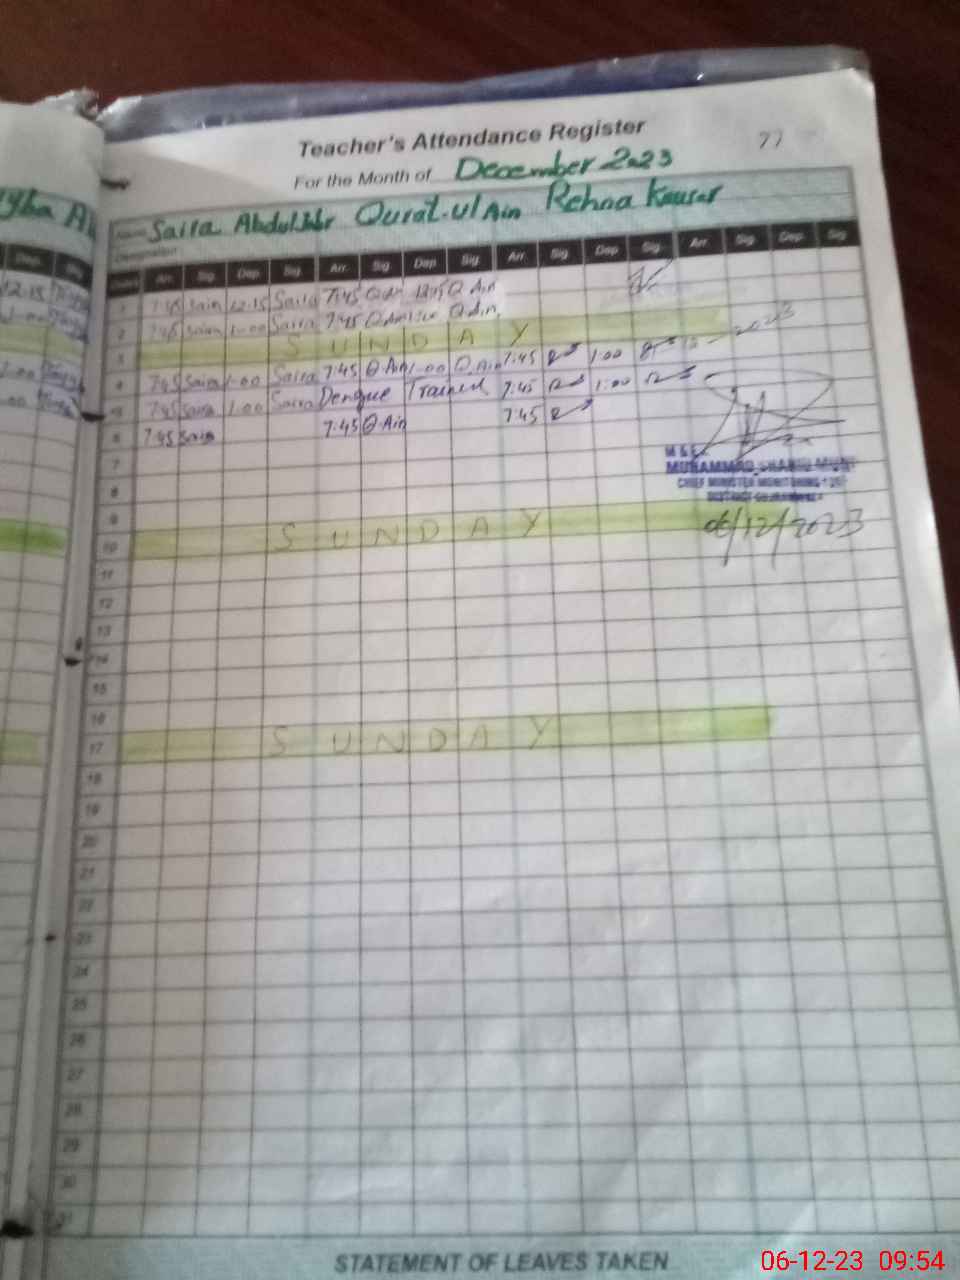 Teacher's Attendance Register
77
For the Month of December 2023
Name Saira Abdul Jabbr Qurat-ul Ain Rehna Kausar
Designation
Dates Arr. Sig. Dep. Sig. Arr. Sig. Dep. Sig. Arr. Sig. Dep. Sig. Arr. Sig. Dep. Sig.
1 7:45 Saira 12:15 Saira 7:45 Q.Ain 12:15 Q.Ain
2 7:45 Saira 1:00 Saira 7:45 Q.Ain 1:00 Q.Ain
3 SUNDAY
4 7:45 Saira 1:00 Saira 7:45 Q.Ain 1:00 Q.Ain 7:45 1:00
5 7:45 Saira 1:00 Saira Dengue Trained 7:45 1:00
6 7:45 Saira 7:45 Q.Ain 7:45
7
8
9
10 SUNDAY
11
12
13
14
15
16
17 SUNDAY
18
19
20
21
22
23
24
25
26
27
28
29
30
31
MUHAMMAD
CHIEF MINISTER MONITORING
DISTRICT
06/12/2023
STATEMENT OF LEAVES TAKEN
06-12-23 09:54